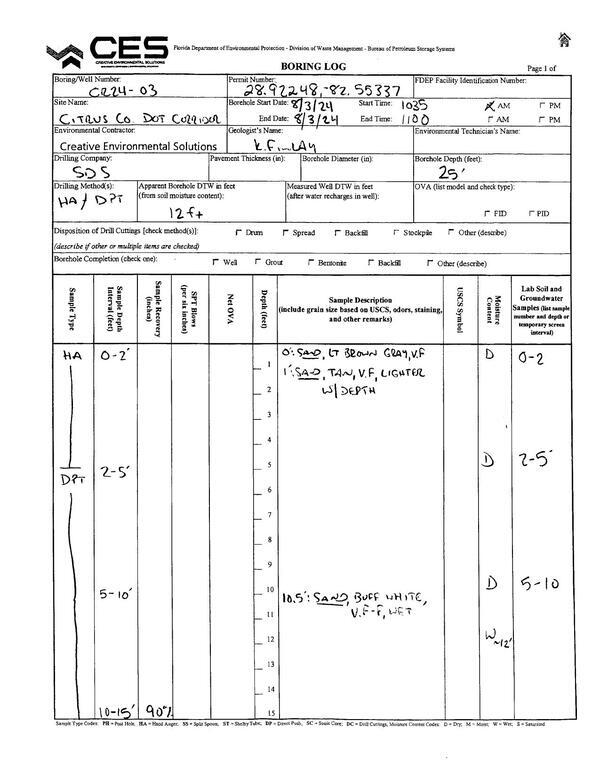 CES
CREATIVE ENVIRONMENTAL SOLUTIONS
Florida Department of Environmental Protection - Division of Waste Management - Bureau of Petroleum Storage Systems
BORING LOG
Page 1 of
Boring/Well Number: CR24-03
Permit Number: 28.92248,-82.55337
FDEP Facility Identification Number:
Site Name: CITRUS CO. DOT CORRIDOR
Borehole Start Date: 8/3/24 Start Time: 1035 X AM PM
End Date: 8/3/24 End Time: 1100 AM PM
Environmental Contractor: Creative Environmental Solutions
Geologist's Name: K. FINLAY
Environmental Technician's Name:
Drilling Company: SDS
Pavement Thickness (in):
Borehole Diameter (in):
Borehole Depth (feet): 25'
Drilling Method(s): HA / DPT
Apparent Borehole DTW in feet (from soil moisture content): 12 ft
Measured Well DTW in feet (after water recharges in well):
OVA (list model and check type):
FID PID
Disposition of Drill Cuttings [check method(s)]: Drum Spread Backfill Stockpile Other (describe)
(describe if other or multiple items are checked)
Borehole Completion (check one): Well Grout Bentonite Backfill Other (describe)
Sample Type
Sample Depth Interval (feet)
Sample Recovery (inches)
SPT Blows (per six inches)
Net OVA
Depth (feet)
Sample Description (include grain size based on USCS, odors, staining, and other remarks)
USCS Symbol
Moisture Content
Lab Soil and Groundwater Samples (list sample number and depth or temporary screen interval)
HA 0-2' 0': SAND, LT BROWN GRAY, V.F D 0-2
1 1': SAND, TAN, V.F, LIGHTER
2 W/ DEPTH
3
4
5 D 2-5'
DPT 2-5'
6
7
8
9
10 D 5-10
5-10' 10.5': SAND, BUFF WHITE,
11 V.F-F, WET
12 W ~12'
13
14
10-15' 90% 15
Sample Type Codes: PH = Post Hole, HA = Hand Auger, SS = Split Spoon, ST = Shelby Tube, DP = Direct Push, SC = Sonic Core, DC = Drill Cuttings, Moisture Content Codes: D = Dry; M = Moist; W = Wet; S = Saturated